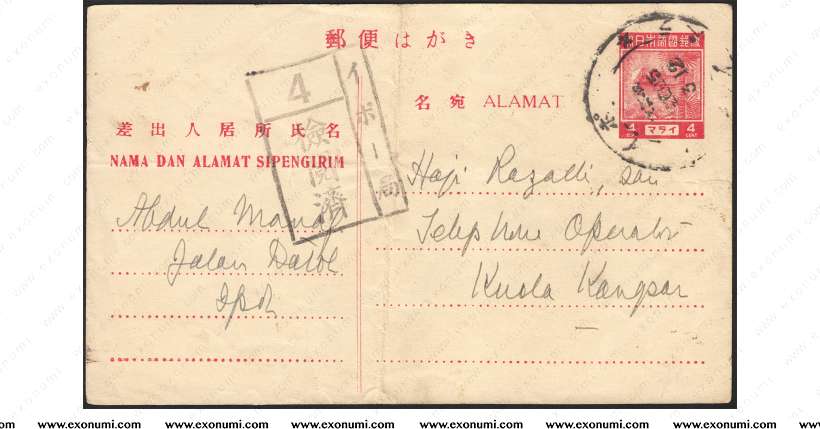 郵便はがき
大日本帝國郵便
4 マライ 4
CENT
名宛 ALAMAT
4
イポー局
檢閲濟
差出人居所氏名
NAMA DAN ALAMAT SIPENGIRIM
Haji Razalli, son
Telephone Operator
Kuala Kangsar
Abdul Manaf
Jalan
Ipoh
www.exonumi.com www.exonumi.com www.exonumi.com www.exonumi.com www.exonumi.com